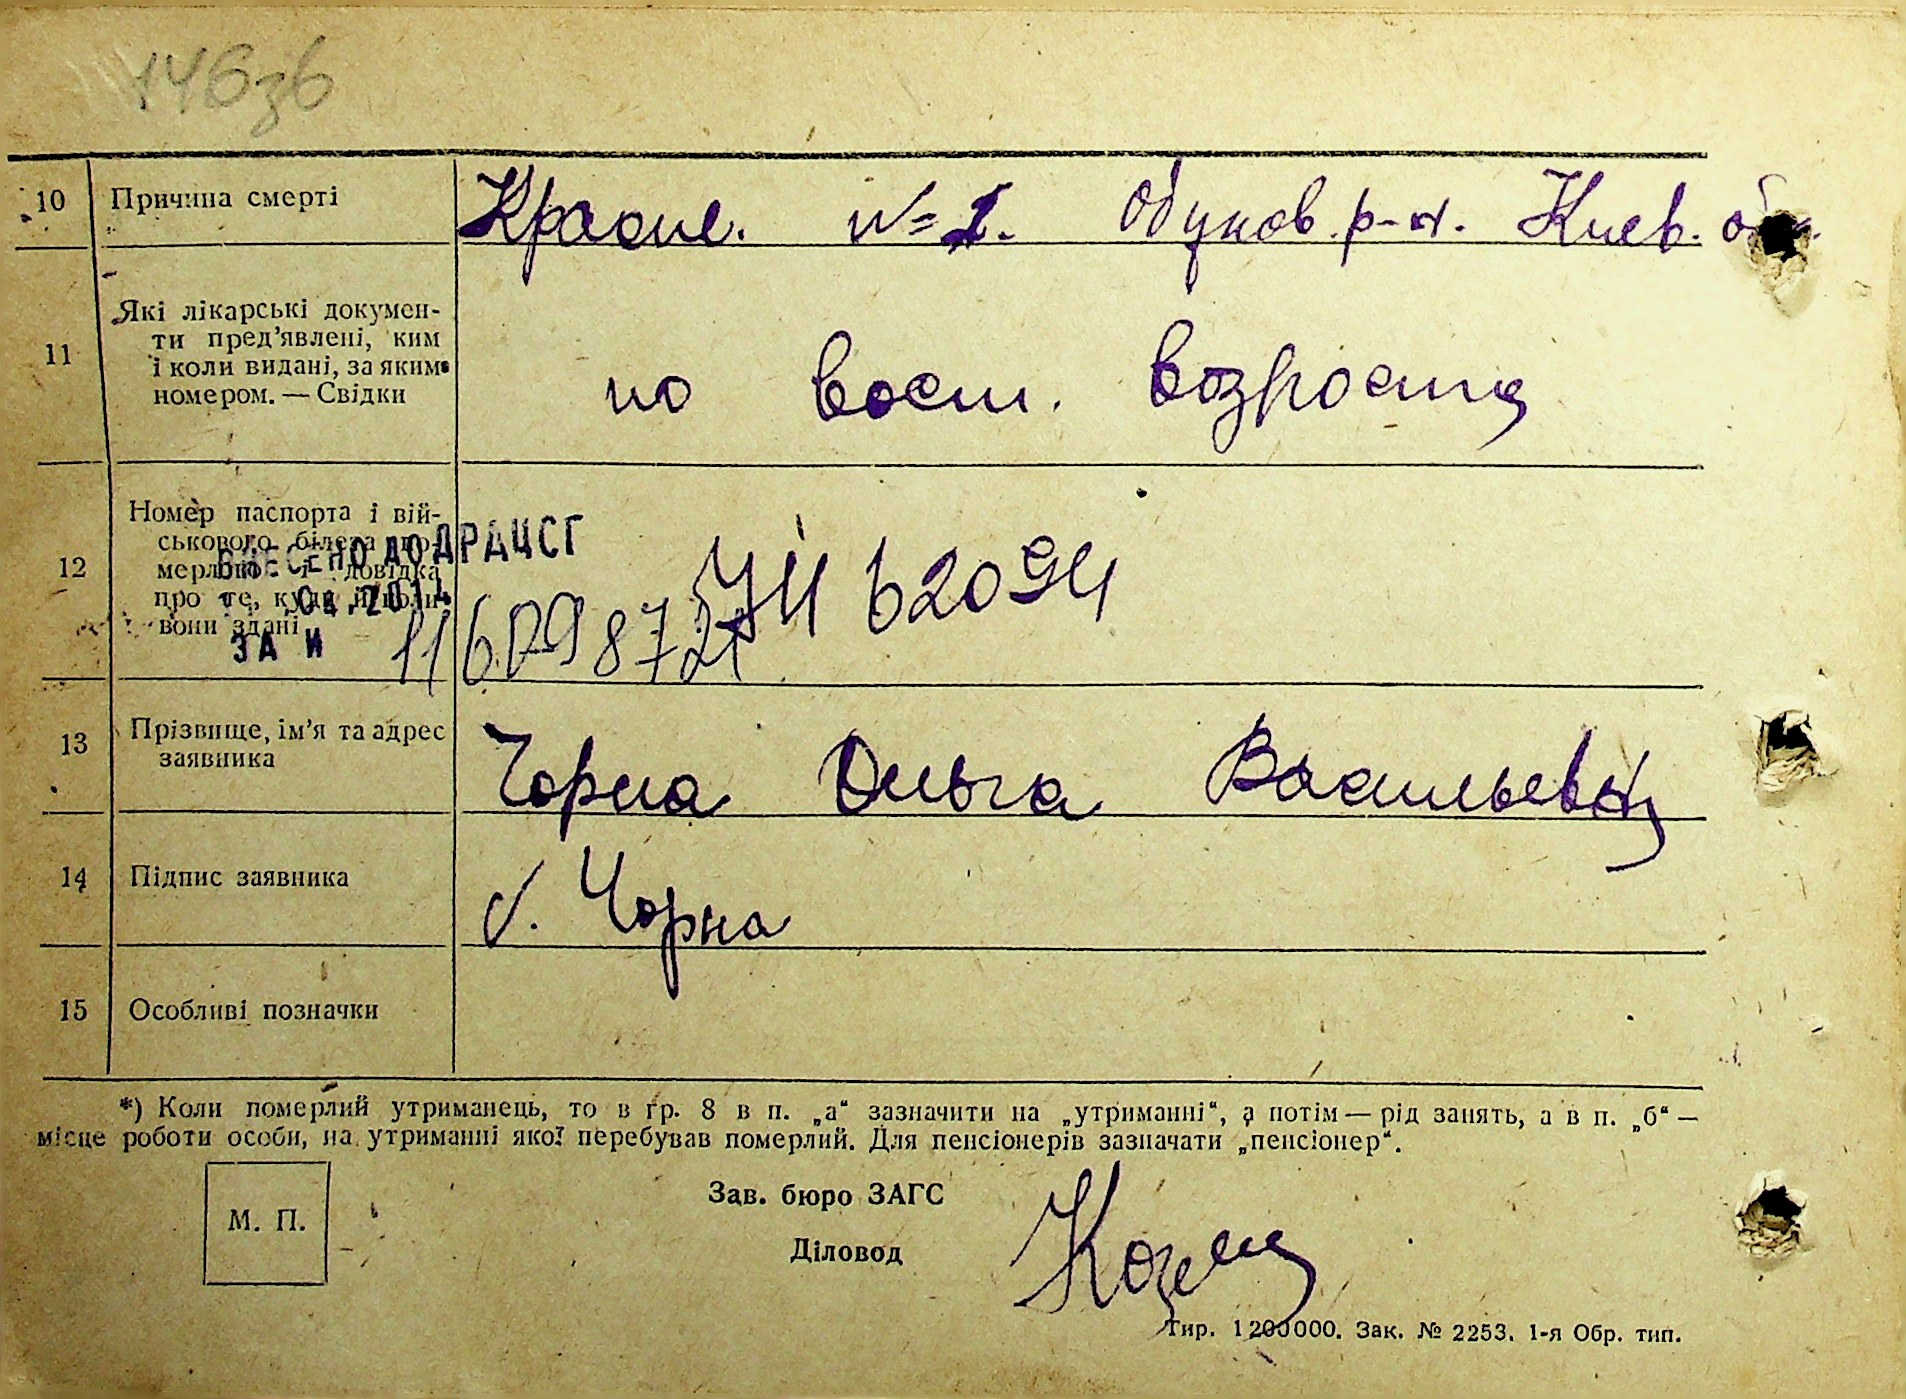 10 Причина смерті Красне. №=1. Обухов. р-н. Киев. обл.
11 Які лікарські докумен-
ти пред’явлені, ким
і коли видані, за яким
номером. — Свідки
по восст. возрасту
12 Номер паспорта і вій-
ськового білета по-
мерлого і довідка
про те, куди й коли
вони здані
ВНЕСЕНО ДО ДРАЦСГ
ЗА И
13 Прізвище, ім’я та адрес
заявника
Чорна Ольга Васильевна
14 Підпис заявника Чорна
15 Особливі позначки
*) Коли померлий утриманець, то в гр. 8 в п. „а“ зазначити на „утриманні“, а потім — рід занять, а в п. „б“ —
місце роботи особи, на утриманні якої перебував померлий. Для пенсіонерів зазначати „пенсіонер“.
М. П.
Зав. бюро ЗАГС
Діловод
Тир. 1200000. Зак. № 2253. 1-я Обр. тип.